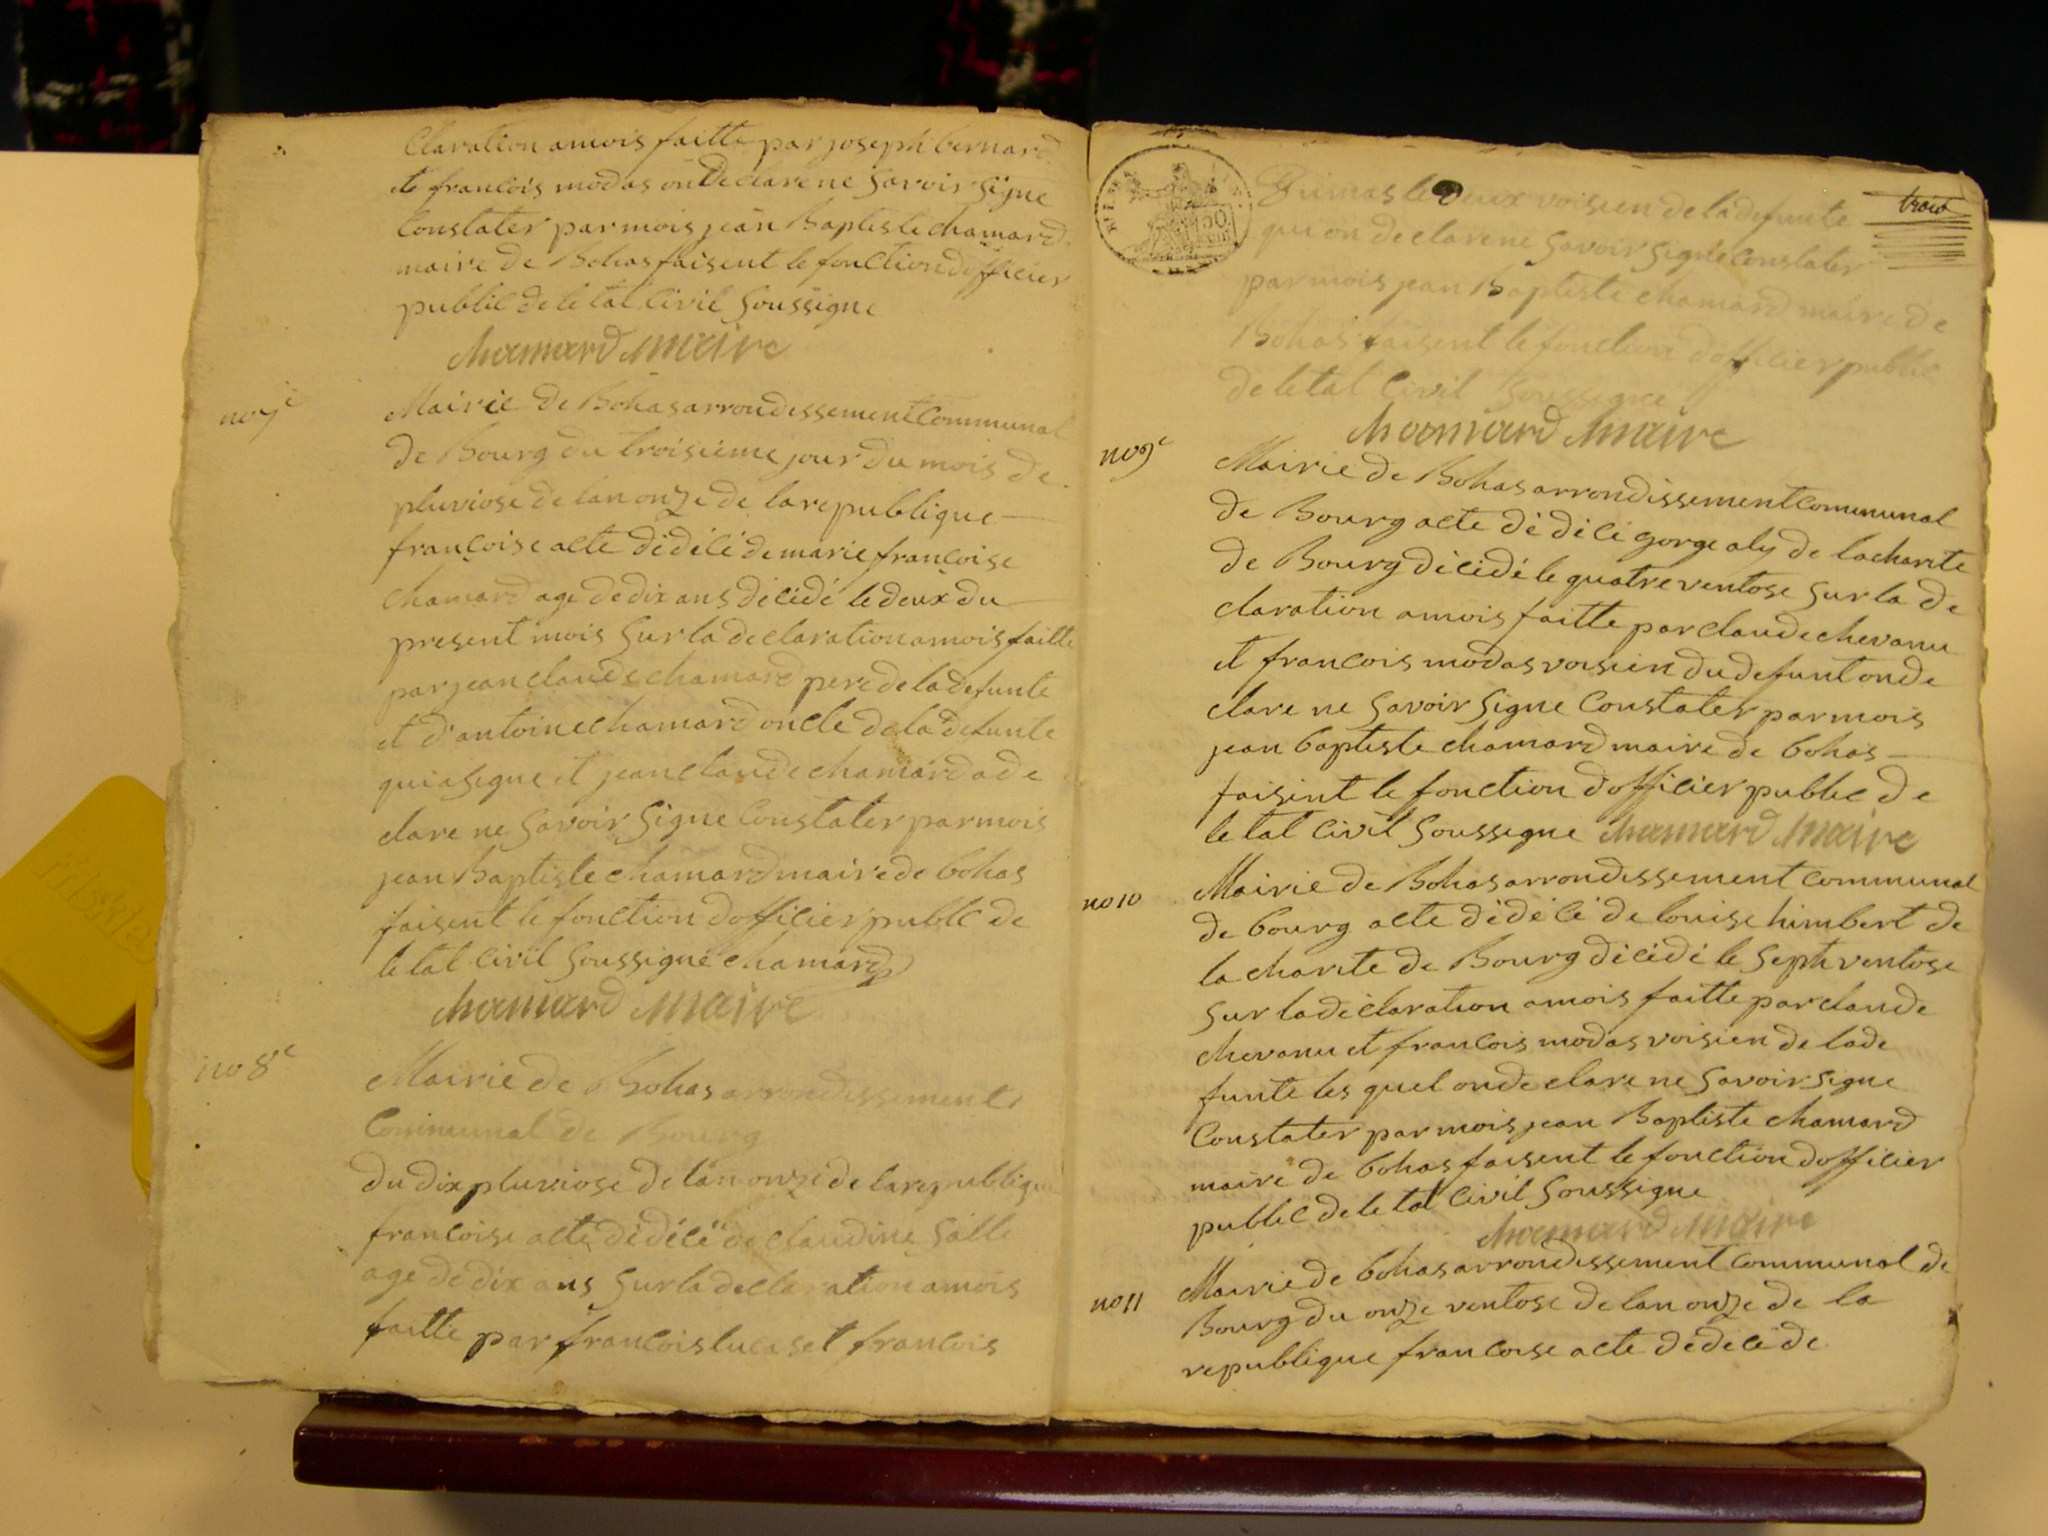 claration a mois faitte par joseph bernard
et francois modas on declare ne savoir signe
Constater par mois jean Baptiste chamard
maire de Bohas faisent le fonction dofficier
public de le tat Civil Soussigne
chamard maire
no 7e
Mairie de Bohas arrondissement Communal
de Bourg du troisieme jour du mois de
pluviose de lan onze de la republique
francoise acte dédécé de marie francoise
chamard age de dix ans décédé le deux du
present mois Sur la declaration a mois faitte
par jean claude chamard pere de la defunte
et d'antoine chamard oncle de la defunte
qui a signe et jean claude chamard a de
clare ne savoir Signe Constater par mois
jean Baptiste chamard maire de bohas
faisent le fonction dofficier publc de
le tat Civil Soussigne chamard
chamard maire
no 8e
Mairie de Bohas arrondissement
Communal de Bourg
du dix pluviose de lan onze de la republique
francoise acte dédécé de claudine Salle
age de dix ans Sur la declaration a mois
faitte par francois lucas et francois
trois
50
les deux voisien de la defunte
qui on declare ne savoir signe Constater
par mois jean Baptiste chamard maire de
Bohas faisent le fonction dofficier public
de le tat Civil Soussigne
chamard maire
no 9e
Mairie de Bohas arrondissement Communal
de Bourg acte dédécé gorge aly de la charite
de Bourg décédé le quatre ventose Sur la de
claration a mois faitte par claude chevanu
et francois modas voisien du defunt on de
clare ne Savoir Signe Constater par mois
jean baptiste chamard maire de bohas
faisent le fonction dofficier public de
le tat Civil Soussigne chamard maire
no 10
Mairie de Bohas arrondissement Communal
de bourg acte dédécé de louise himbert de
la charite de Bourg décédé le Septe ventose
Sur la déclaration a mois faitte par claude
chevanu et francois modas voisien de la de
funte les quel on declare ne Savoir Signe
Constater par mois jean Baptiste chamard
maire de bohas faisent le fonction dofficier
public de le tat Civil Soussigne
chamard maire
no 11
Mairie de bohas arrondissement Communal de
Bourg du onze ventose de lan onze de la
republique francoise acte dedece de